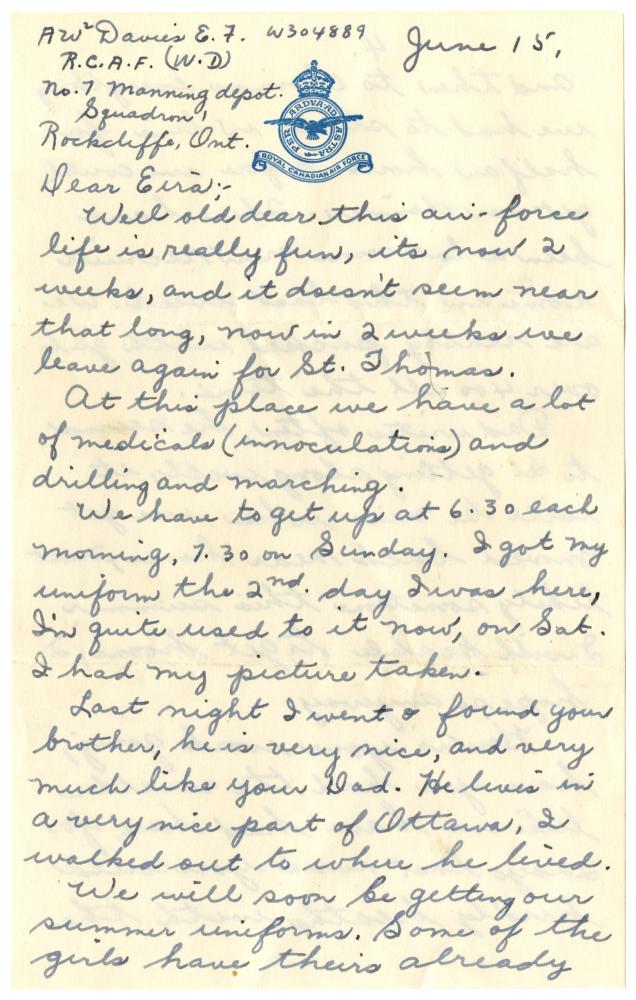 AW² Davies E. F. W304889
June 15,
R.C.A.F. (W.D)
No. 7 Manning depot.
Squadron 1
Rockcliffe, Ont.
PER ARDVA AD ASTRA
ROYAL CANADIAN AIR FORCE
Dear Eira;-
Well old dear this air-force
life is really fun, its now 2
weeks, and it doesn't seem near
that long, now in 2 weeks we
leave again for St. Thomas.
At this place we have a lot
of medicals (innoculations) and
drilling and marching.
We have to get up at 6.30 each
morning, 7.30 on Sunday. I got my
uniform the 2nd. day I was here,
I'm quite used to it now, on Sat.
I had my picture taken.
Last night I went & found your
brother, he is very nice, and very
much like your Dad. He lives in
a very nice part of Ottawa, I
walked out to where he lived.
We will soon be getting our
summer uniforms. Some of the
girls have theirs already